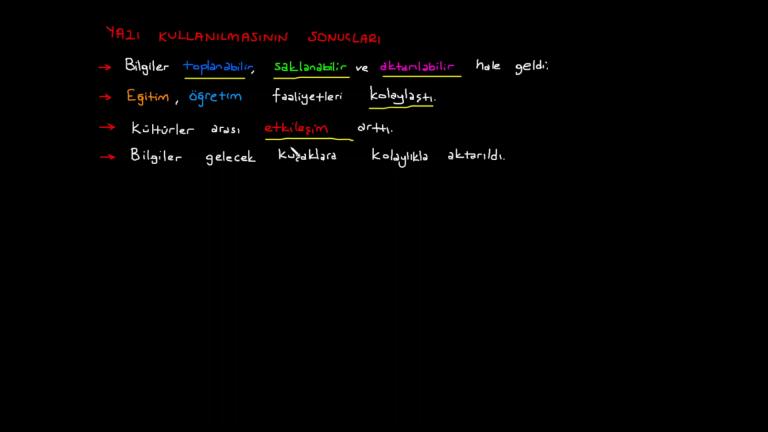 YAZI KULLANILMASININ SONUÇLARI
→ Bilgiler toplanabilir, saklanabilir ve aktarılabilir hale geldi.
→ Eğitim, öğretim faaliyetleri kolaylaştı.
→ Kültürler arası etkileşim arttı.
→ Bilgiler gelecek kuşaklara kolaylıkla aktarıldı.